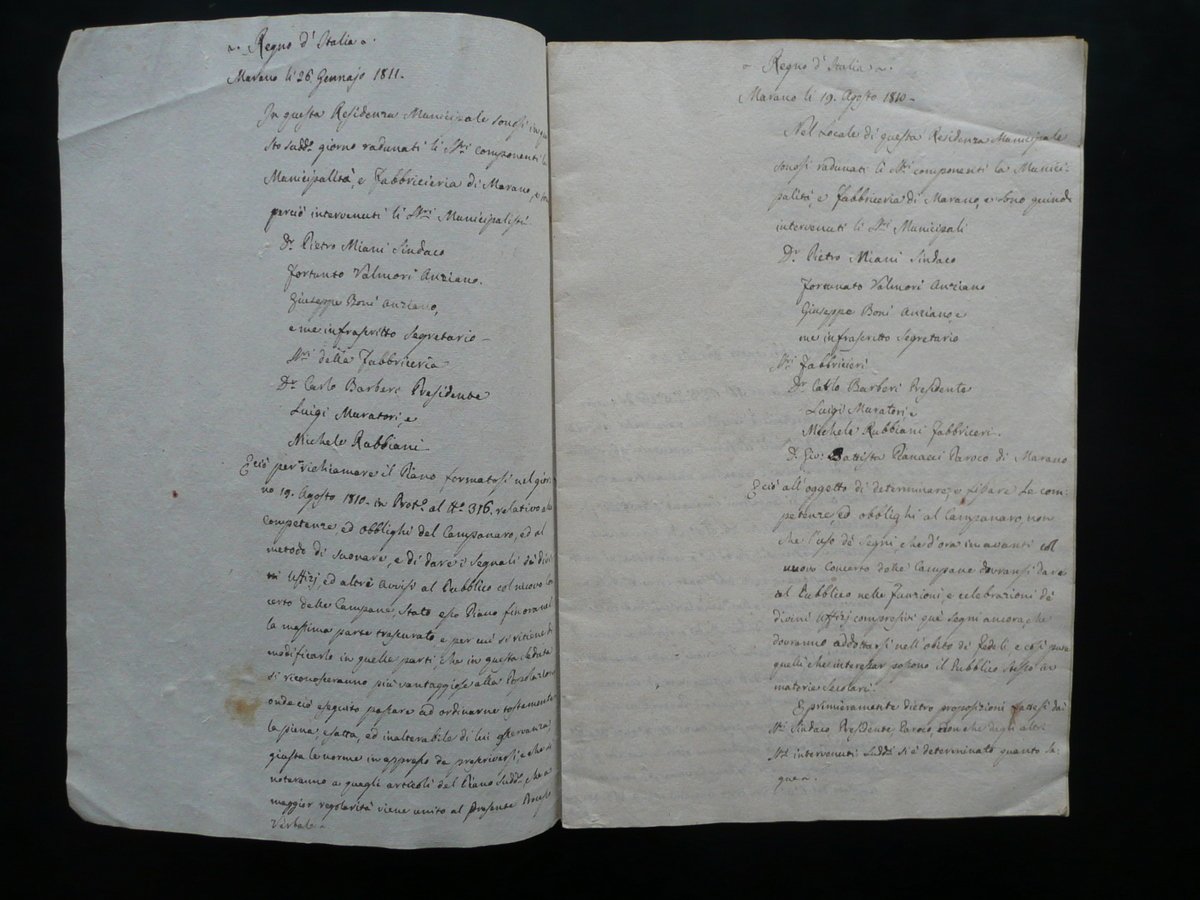 Regno d'Italia
Marano li 26 Gennajo 1811.
In questa Residenza Municipale sonosi in que
sto sudd.o giorno radunati li SS.ri componenti la
Municipalità, e Fabbricieria di Marano, e
perciò intervenuti li SS.ri Municipalisti
D.r Pietro Miani Sindaco
Fortunto Valmori Anziano.
Giuseppe Boni Anziano,
e me infrascritto Segretario
SS.ri della Fabbriceria
D.r Carlo Barberi Presidente
Luigi Muratori, e
Michele Rabbiani
E ciò per richiamare il Piano formatosi nel gior-
no 19. Agosto 1810. in Prot.o al N.o 316. relativo alle
competenze, ed obblighi del Campanaro, ed al
metodo di suonare, e di dare i segnali de' divi
ni Uffizj, ed altri avvisi al Pubblico col nuovo Con
certo delle Campane, stato esso Piano finora nel
la massima parte trascurato e per cui si ritiene di
modificarlo in quelle parti che in questa seduta
si riconosceranno più vantaggiose alla Popolazione
onde ciò eseguito passare ad ordinarne tostamente
la piena, esatta, ed inalterabile di lui osservanza,
giusta le norme in appresso da prescriversi, e che si
noteranno a quegli articoli del Piano sudd.o, che a
maggior regolarità viene unito al presente Processo
Verbale.
Regno d'Italia
Marano li 19. Agosto 1810
Nel Locale di questa Residenza Municipale
sonosi radunati li SS.ri componenti la Munici-
palità, e Fabbriceria di Marano, e sono quindi
intervenuti li SS.ri Municipali
D.r Pietro Miani Sindaco
Fortunato Valmori Anziano
Giuseppe Boni Anziano, e
me infrascritto Segretario
SS.ri Fabbricieri
D.r Carlo Barberi Presidente
Luigi Muratori e
Michele Rubbiani Fabbriceri.
D. Gio: Battista Paroco di Marano
E ciò all'oggetto di determinare, e fissare le com-
petenze, ed obblighi al Campanaro non
che l'uso de' segni, che d'ora in avanti col
nuovo Concerto delle Campane dovransi dare
al Pubblico nelle funzioni, e celebrazioni de'
divini Uffizj compresivi que' segni ancora, che
dovranno addottarsi nell'obito di Fedeli, e così pure
quelli che interessar possono il Pubblico stesso in
materie secolari.
E primieramente dietro proposizioni fattesi dai
SS.ri Sindaco, Presidente, Paroco, non che degli altri
SS.ri intervenuti sudd.i si è determinato quanto se-
gue.